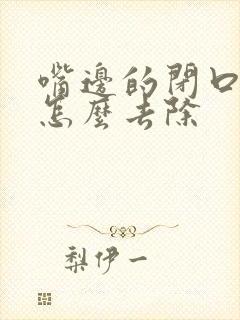 嘴邊的閉口
怎麼去除
梨伊一